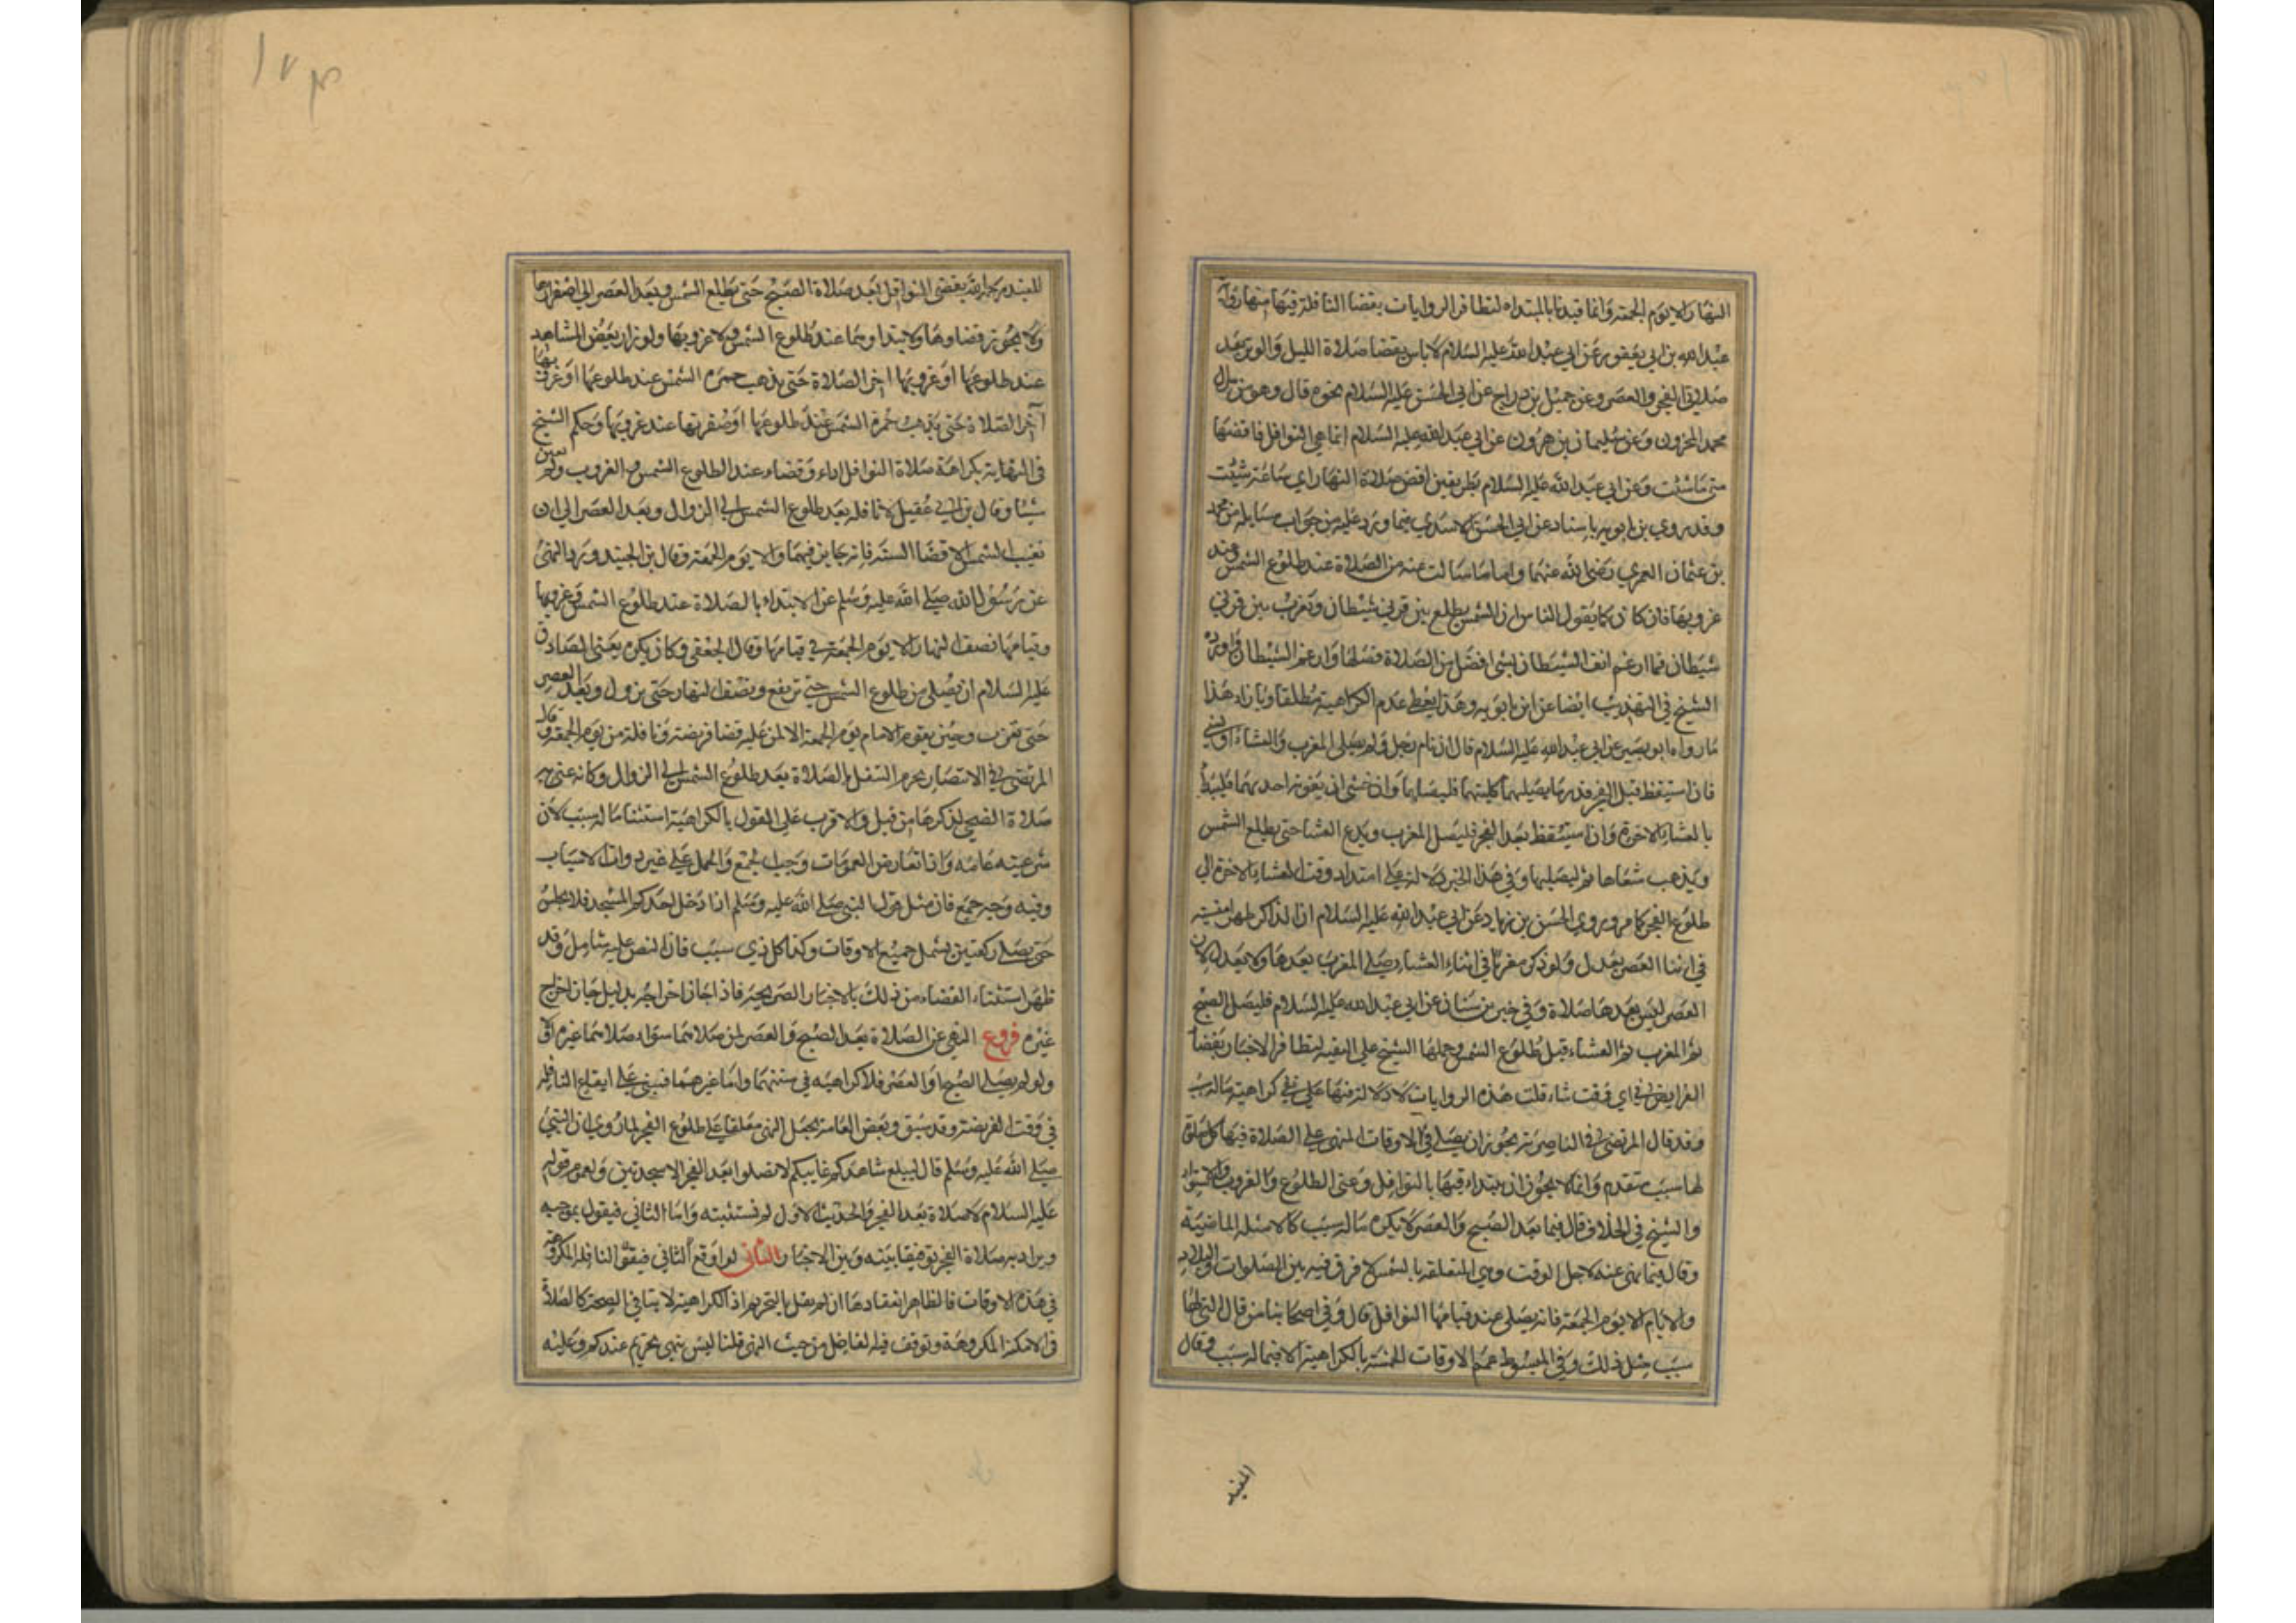 النهار الا يوم الجمعة وانما قيدنا بالمبتداه لتظافر الروايات بقضا النافلة فيها منها رواية
عبد الله بن ابي يعفور عن ابي عبد الله عليه السلام لا باس بقضا صلاة الليل والوتر بعد
صلاتي الفجر والعصر وعن جميل بن دراج عن ابي الحسن عليه السلام نحوه قال وهو من سر ال
محمد المخزون وعن سليمان بن هرون عن ابي عبد الله عليه السلام انما هي النوافل فاقضها
متى ما شئت وعن ابي عبد الله عليه السلام بطريقين اقض صلاة النهار اي ساعة شئت
وقد روي بن بابويه باسناد عن ابي الحسن الاسدي فيما ورد عليه من جواب مسايله من محمد
بن عثمان العمري رضى الله عنهما واما ما سالت عنه من الصلاة عند طلوع الشمس وعند
غروبها فان كان كما يقول الناس ان الشمس يطلع بين قرني شيطان وتغرب بين قرني
شيطان فما ارغم انف الشيطان بشى افضل من الصلاة فصلها وارغم الشيطان واورده
الشيخ في التهذيب ايضا عن ابن بابويه وهذا يعطي عدم الكراهية مطلقا وبازاء هذا
ما رواه ابو بصير عن ابي عبد الله عليه السلام قال ان نام رجل ولم يصلى المغرب والعشاء او نسي
فان استيقظ قبل الفجر قدر ما يصليهما كليتهما فليصلهما وان خشى ان يفوته احديهما فليبدأ
بالعشاء الاخرة وان استيقظ بعد الفجر فليصل المغرب ويدع العشا حتى يطلع الشمس
ويذهب شعاها ثم ليصليها وفي هذا الخبر دلالة على امتداد وقت العشاء الاخرة الي
طلوع الفجر كما مر وروي الحسن بن زياد عن ابي عبد الله عليه السلام اذا لذاكر ظهر امنسيته
في اثنا العصر يعدل ولو ذكر مغربا في اثناء العشاء صلى المغرب بعدها ولا يعدل لان
العصر ليس بعدها صلاة وفي خبر بن سنان عن ابي عبد الله عليه السلام فليصل الصبح
ثم المغرب ثم العشاء قبل طلوع الشمس وحملها الشيخ علي التقيه لتظافر الاخبار بقضا
الفرايض في اي وقت شاء قلت هذه الروايات لا دلالة فيها على نفي كراهية ماله سبب
وقد قال المرتضى في الناصرية يجوز ان يصلي في الاوقات المنهي على الصلاة فيها كل صلاة
لها سبب متقدم وانما لا يجوز ان يبتداء فيها بالنوافل وعنى الطلوع والغروب والاستواء
والشيخ في الخلاف قال فيما بعد الصبح والعصر لا يكره ماله سبب كالامثله الماضية
وقال فيما نهى عنه لاجل الوقت وهي المتعلقة بالشمس لا فرق فيه بين الصلوات والبلاد
والايام الا يوم الجمعة فانه يصلى عند قيامها النوافل قال وفي اصحابنا من قال التي لها
سبب مثل ذلك وفي المبسوط عمم الاوقات الخمسة بالكراهية الا فيما له سبب وقال
المفيد
١٧٣
المفيد رحمه الله يقضى النوافل بعد صلاة الصبح حتى يطلع الشمس وبعد العصر الي اصفرارها
ولا يجوز قضاوها ولا ابتداوها عند طلوع الشمس ولا غروبها ولو زار بعض المشاهد
عند طلوعها او غروبها اخر الصلاة حتى يذهب حمرة الشمس عند طلوعها او غروبها
آخر الصلاة حتى يذهب حمرة الشمس عند طلوعها او صفرتها عند غروبها وحكم الشيخ
في النهاية بكراهة صلاة النوافل اداء وقضاء عند الطلوع الشمس والغروب ولم يعين
شيئا وقال بن ابي عقيل لا نافله بعد طلوع الشمس الى الزوال وبعد العصر الي ان
تغيب الشمس الا قضا السنة فانه جايز فيهما والا يوم الجمعة وقال بن الجنيد ورد النهى
عن رسول الله صلى الله عليه وسلم عن الابتداء بالصلاة عند طلوع الشمس وغروبها
وقيامها نصف النهار الا يوم الجمعة في قيامها وقال الجعفي وكان يكره يعنى الصادق
عليه السلام ان يصلى من طلوع الشمس حتى ترتفع ونصف النهار حتى يزول وبعد العصر
حتى تغرب وحين يقوم الامام يوم الجمعة الا لمن عليه قضا فريضة ونافلة من يوم الجمعة وقال
المرتضى في الانتصار يحرم التنفل بالصلاة بعد طلوع الشمس الى الزوال وكانه عنى به
صلاة الضحى لذكرها من قبل والاقرب على القول بالكراهية استثنا ماله سبب لان
شرعيته عامه واذا تعارض العمومات وجب الجمع والحمل على غير ذوات الاسباب
وفيه وجه جمع فان مثل قول النبي صلى الله عليه وسلم اذا دخل احدكم المسجد فلا يجلس
حتى يصلي ركعتين يشمل جميع الاوقات وكذا كل ذي سبب فان النص عليه شامل وقد
ظهر استثناء القضاء من ذلك بالاخبار الصريحة فاذا جاز اخراجه بدليل جاز اخراج
غيره فروع النهي عن الصلاة بعد الصبح والعصر لمن صلاهما سواء صلاهما غيره او لا
ولو لم يصلى الصبح او العصر فلا كراهيه في سنتهما واما غيرهما فمبنى على ايقاع النافلة
في وقت الفريضة وقد سبق وبعض العامة يجعل النهى معلقا على طلوع الفجر لما روي ان النبي
صلى الله عليه وسلم قال ليبلغ شاهدكم غايبكم لا تصلوا بعد الفجر الا سجدتين ولعموم قوله
عليه السلام لا صلاة بعد الفجر والحديث الاول لم نستثبته واما الثاني فيقول بموجبه
ويراد به صلاة الفجر توفيقا بينه وبين الاخبار الثاني لو اوقع النافلة المكروهة
في هذه الاوقات فالظاهر انعقادها ان لم يقل بالتحريم اذ الكراهية لا ينافي الصحة كالصلاة
في الامكنة المكروهة وتوقف فيه الفاضل من حيث النهى قلنا ليس بنهى تحريم عندكم وعليه